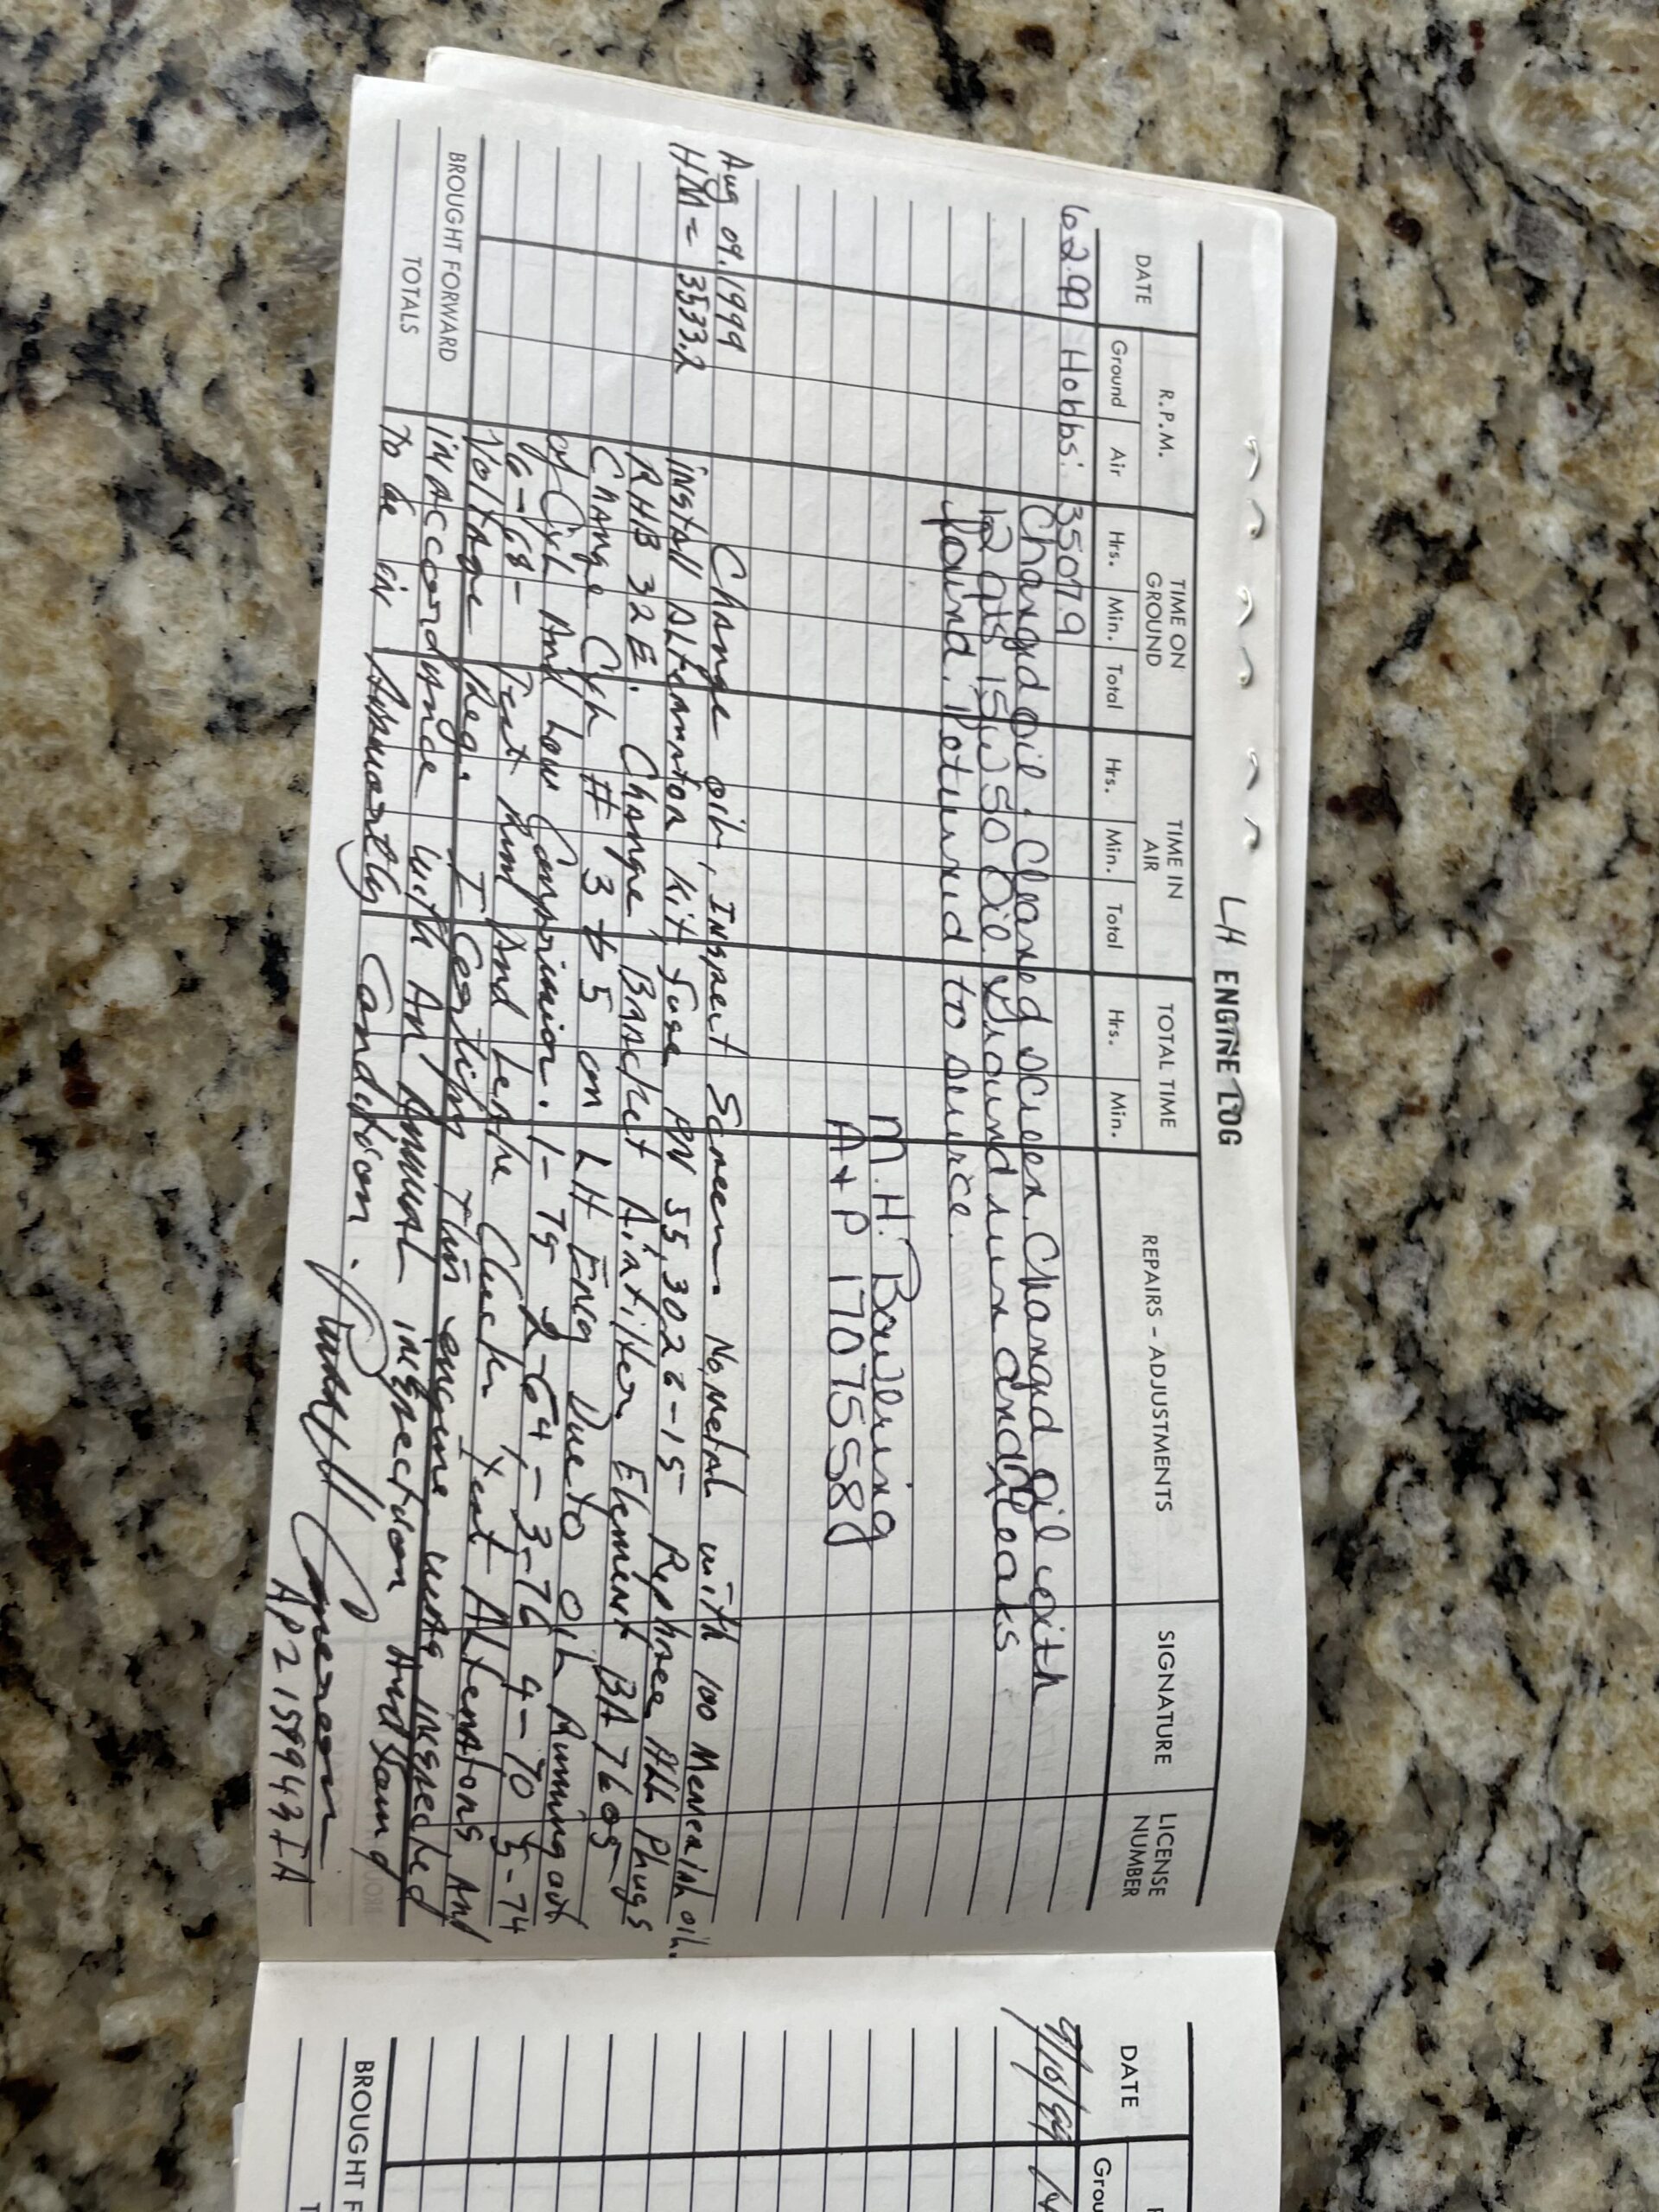 LH ENGINE LOG
DATE R.P.M. TIME ON GROUND TIME IN AIR TOTAL TIME REPAIRS - ADJUSTMENTS SIGNATURE LICENSE NUMBER
Ground Air Hrs. Min. Total Hrs. Min. Total Hrs. Min.
6.2.99 Hobbs: 3507.9
Changed oil. Cleaned screen. Changed oil with
12 qts 15w50 oil. Ground run and leaks
found. Returned to service.
M.H. Bowlring
A+P 1707558
Aug 09, 1999 Change oil, Inspect Screen. No metal with 100 Mineral oil.
HM = 3533.2 install ALternator Kit, fuse PN 55,3026-15 Replace ALL Plugs
RHB 32E. Change Bracket Airfilter Element BA 7605
Change Cyl # 3 & 5 on LH Eng Due to Oil Running out
of Cyl And Low Compression. 1-75 2-64,-3-76 4-70 5-74
6-68- Test Run And Leake Check Test ALternators And
Voltage Reg. I Certify this engine was inspected
in accordance with An Annual inspection And found
to be in Airworthy Condition.
Cameron
AP2159943IA
BROUGHT FORWARD
TOTALS
DATE
9/10/99
BROUGHT F